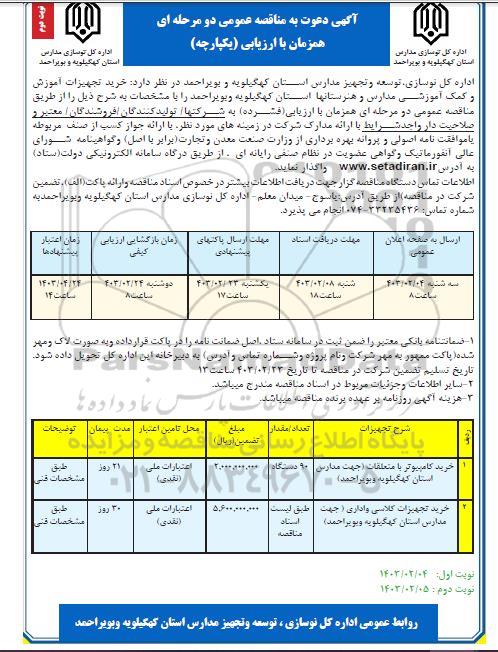 نوبت دوم
آگهی دعوت به مناقصه عمومی دو مرحله ای
همزمان با ارزیابی (یکپارچه)
اداره کل نوسازی مدارس
استان کهگیلویه وبویراحمد
اداره کل نوسازی مدارس
استان کهگیلویه وبویراحمد
اداره کل نوسازی،توسعه وتجهیز مدارس اســتان کهگیلویه و بویراحمد در نظر دارد: خرید تجهیزات آموزش
و کمک آموزشــی مدارس و هنرستانها اســتان کهگیلویه وبویراحمد را با مشخصات به شرح ذیل را از طریق
مناقصه عمومی دو مرحله ای همزمان با ارزیابی(فشرده) به شرکتها/ تولیدکنندگان/فروشندگان/ معتبر و
صلاحیت دار واجدشــرایط با ارائه مدارک شرکت در زمینه های مورد نظر، با ارائه جواز کسب از صنف مربوطه
یاموافقت نامه اصولی و پروانه بهره برداری از وزارت صنعت معدن وتجارت(برابر با اصل) وگواهینامه شــورای
عالی آنفورماتیک وگواهی عضویت در نظام صنفی رایانه ای . از طریق درگاه سامانه الکترونیکی دولت(ستاد)
به آدرس www.setadiran.ir واگذار نماید.
اطلاعات تماس دستگاه مناقصه گزار جهت دریافت اطلاعات بیشتر در خصوص اسناد مناقصه وارائه پاکت(الف)، تضمین
شرکت در مناقصه)از طریق آدرس:یاسوج- میدان معلم- اداره کل نوسازی مدارس استان کهگیلویه وبویراحمدبه
شماره تماس: ۳۳۲۳۵۴۳۶-۰۷۴ انجام می پذیرد.
ارسال به صفحه اعلان عمومی | مهلت دریافت اسناد | مهلت ارسال پاکتهای پیشنهادی | زمان بازگشایی ارزیابی کیفی | زمان اعتبار پیشنهادها
سه شنبه ۴۰۳/۰۲/۰۴ ساعت۸ | شنبه ۴۰۳/۰۲/۰۸ ساعت۱۸ | یکشنبه ۴۰۳/۰۲/۲۳ ساعت۱۷ | دوشنبه ۴۰۳/۰۲/۲۴ ساعت۸ | ۱۴۰۳/۰۴/۲۴ ساعت۱۴
۱-ضمانتنامه بانکی معتبر را ضمن ثبت در سامانه ستاد ،اصل ضمانت نامه را در پاکت قرارداده وبه صورت لاک ومهر
شده(پاکت ممهور به مهر شرکت ونام پروژه وشــماره تماس وآدرس) به دبیرخانه این اداره کل تحویل داده شود.
تاریخ تسلیم تضمین شرکت در مناقصه تا تاریخ ۴۰۳/۰۲/۲۳ ساعت۱۳
۲-سایر اطلاعات وجزئیات مربوط در اسناد مناقصه مندرج میباشد.
۳-هزینه آگهی روزنامه بر عهده برنده مناقصه میباشد.
ردیف | شرح تجهیزات | تعداد/مقدار | مبلغ تضمین(ریال) | محل تامین اعتبار | مدت پیمان | توضیحات
۱ | خرید کامپیوتر با متعلقات (جهت مدارس استان کهگیلویه وبویراحمد) | ۹۰ دستگاه | ۲,۰۰۰,۰۰۰,۰۰۰ | اعتبارات ملی (نقدی) | ۲۱ روز | طبق مشخصات فنی
۲ | خرید تجهیزات کلاسی واداری ( جهت مدارس استان کهگیلویه وبویراحمد) | طبق لیست اسناد مناقصه | ۵,۶۰۰,۰۰۰,۰۰۰ | اعتبارات ملی (نقدی) | ۳۰ روز | طبق مشخصات فنی
پایگاه اطلاع رسانی مناقصه و مزایده
۰۲۱-۸۸۳۴۹۶۷۰-۵
نوبت اول: ۱۴۰۳/۰۲/۰۴
نوبت دوم : ۱۴۰۳/۰۲/۰۵
روابط عمومی اداره کل نوسازی ، توسعه وتجهیز مدارس استان کهگیلویه وبویراحمد